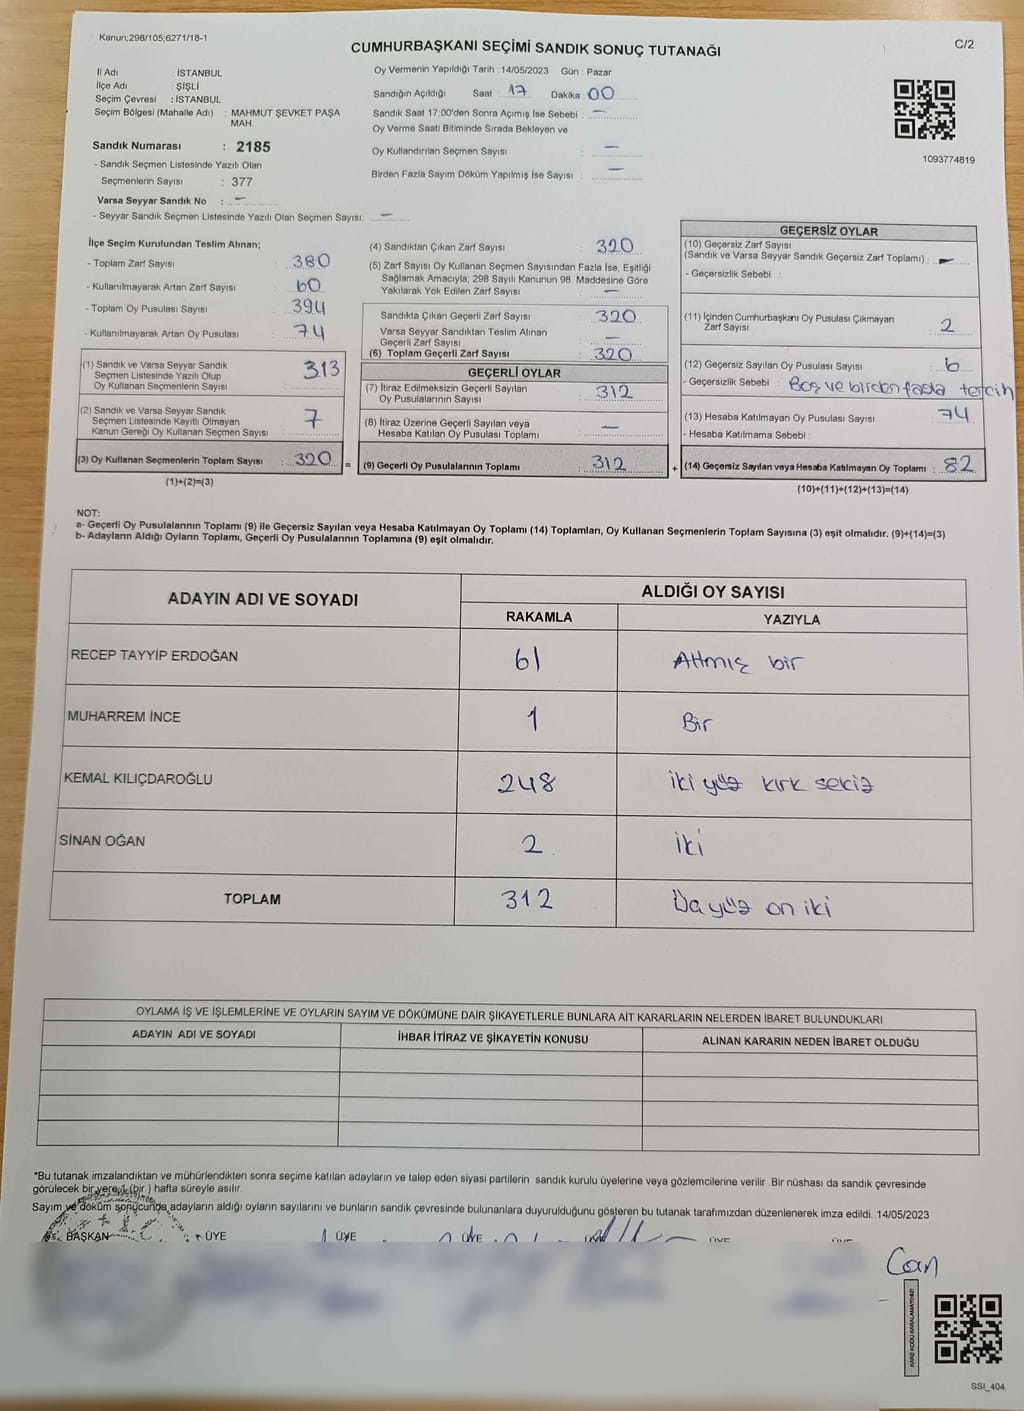 Kanun;298/105;6271/18-1
C/2
CUMHURBAŞKANI SEÇİMİ SANDIK SONUÇ TUTANAĞI
İl Adı : İSTANBUL
İlçe Adı : ŞİŞLİ
Seçim Çevresi : İSTANBUL
Seçim Bölgesi (Mahalle Adı) : MAHMUT ŞEVKET PAŞA
MAH.
Sandık Numarası : 2185
- Sandık Seçmen Listesinde Yazılı Olan
Seçmenlerin Sayısı : 377
Varsa Seyyar Sandık No : –
- Seyyar Sandık Seçmen Listesinde Yazılı Olan Seçmen Sayısı: –
Oy Vermenin Yapıldığı Tarih : 14/05/2023 Gün : Pazar
Sandığın Açıldığı Saat : 17 Dakika : 00
Sandık Saat 17:00'den Sonra Açımış İse Sebebi : –
Oy Verme Saati Bitiminde Sırada Bekleyen ve
Oy Kullandırılan Seçmen Sayısı : –
Birden Fazla Sayım Döküm Yapılmış İse Sayısı : –
1093774819
İlçe Seçim Kurulundan Teslim Alınan;
- Toplam Zarf Sayısı : 380
- Kullanılmayarak Artan Zarf Sayısı : 60
- Toplam Oy Pusulası Sayısı : 394
- Kullanılmayarak Artan Oy Pusulası : 74
(1) Sandık ve Varsa Seyyar Sandık
Seçmen Listesinde Yazılı Olup
Oy Kullanan Seçmenlerin Sayısı : 313
(2) Sandık ve Varsa Seyyar Sandık
Seçmen Listesinde Kayıtlı Olmayan
Kanun Gereği Oy Kullanan Seçmen Sayısı : 7
(3) Oy Kullanan Seçmenlerin Toplam Sayısı : 320
(1)+(2)=(3)
(4) Sandıktan Çıkan Zarf Sayısı : 320
(5) Zarf Sayısı Oy Kullanan Seçmen Sayısından Fazla İse, Eşitliği
Sağlamak Amacıyla; 298 Sayılı Kanunun 98. Maddesine Göre
Yakılarak Yok Edilen Zarf Sayısı : –
Sandıkta Çıkan Geçerli Zarf Sayısı : 320
Varsa Seyyar Sandıktan Teslim Alınan
Geçerli Zarf Sayısı : –
(6) Toplam Geçerli Zarf Sayısı : 320
GEÇERLİ OYLAR
(7) İtiraz Edilmeksizin Geçerli Sayılan
Oy Pusulalarının Sayısı : 312
(8) İtiraz Üzerine Geçerli Sayılan veya
Hesaba Katılan Oy Pusulası Toplamı : –
= (9) Geçerli Oy Pusulalarının Toplamı : 312
GEÇERSİZ OYLAR
(10) Geçersiz Zarf Sayısı
(Sandık ve Varsa Seyyar Sandık Geçersiz Zarf Toplamı) : –
- Geçersizlik Sebebi :
(11) İçinden Cumhurbaşkanı Oy Pusulası Çıkmayan
Zarf Sayısı : 2
(12) Geçersiz Sayılan Oy Pusulası Sayısı : 6
- Geçersizlik Sebebi : Boş ve birden fazla tercih
(13) Hesaba Katılmayan Oy Pusulası Sayısı : 74
- Hesaba Katılmama Sebebi :
+ (14) Geçersiz Sayılan veya Hesaba Katılmayan Oy Toplamı : 82
(10)+(11)+(12)+(13)=(14)
NOT:
a- Geçerli Oy Pusulalarının Toplamı (9) ile Geçersiz Sayılan veya Hesaba Katılmayan Oy Toplamı (14) Toplamları, Oy Kullanan Seçmenlerin Toplam Sayısına (3) eşit olmalıdır. (9)+(14)=(3)
b- Adayların Aldığı Oyların Toplamı, Geçerli Oy Pusulalarının Toplamına (9) eşit olmalıdır.
ADAYIN ADI VE SOYADI
ALDIĞI OY SAYISI
RAKAMLA YAZIYLA
RECEP TAYYİP ERDOĞAN 61 Altmış bir
MUHARREM İNCE 1 Bir
KEMAL KILIÇDAROĞLU 248 iki yüz kırk sekiz
SİNAN OĞAN 2 iki
TOPLAM 312 Üçyüz on iki
OYLAMA İŞ VE İŞLEMLERİNE VE OYLARIN SAYIM VE DÖKÜMÜNE DAİR ŞİKAYETLERLE BUNLARA AİT KARARLARIN NELERDEN İBARET BULUNDUKLARI
ADAYIN ADI VE SOYADI İHBAR İTİRAZ VE ŞİKAYETİN KONUSU ALINAN KARARIN NEDEN İBARET OLDUĞU
*Bu tutanak imzalandıktan ve mühürlendikten sonra seçime katılan adayların ve talep eden siyasi partilerin sandık kurulu üyelerine veya gözlemcilerine verilir .Bir nüshası da sandık çevresinde
görülecek bir yere 1 (bir ) hafta süreyle asılır.
Sayım ve döküm sonucunda adayların aldığı oyların sayılarını ve bunların sandık çevresinde bulunanlara duyurulduğunu gösteren bu tutanak tarafımızdan düzenlenerek imza edildi. 14/05/2023
BAŞKAN ÜYE ÜYE ÜYE ÜYE ÜYE
Can
KARE KODU KARALAMAYINIZ!
SSI_404